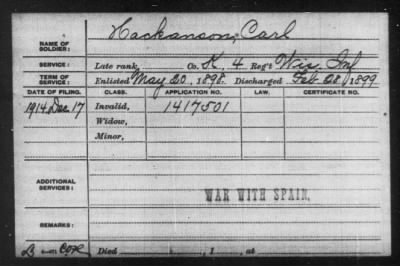 Hackanson, Carl
NAME OF SOLDIER:
SERVICE: Late rank, Co. K, 4 Reg't Wis. Inf
TERM OF SERVICE: Enlisted May 20, 1898. Discharged Feb. 28, 1899
DATE OF FILING. CLASS. APPLICATION NO. LAW. CERTIFICATE NO.
1914 Dec. 17 Invalid, 1417501
Widow,
Minor,
ADDITIONAL SERVICES:
WAR WITH SPAIN.
REMARKS:
Died , 1 , at